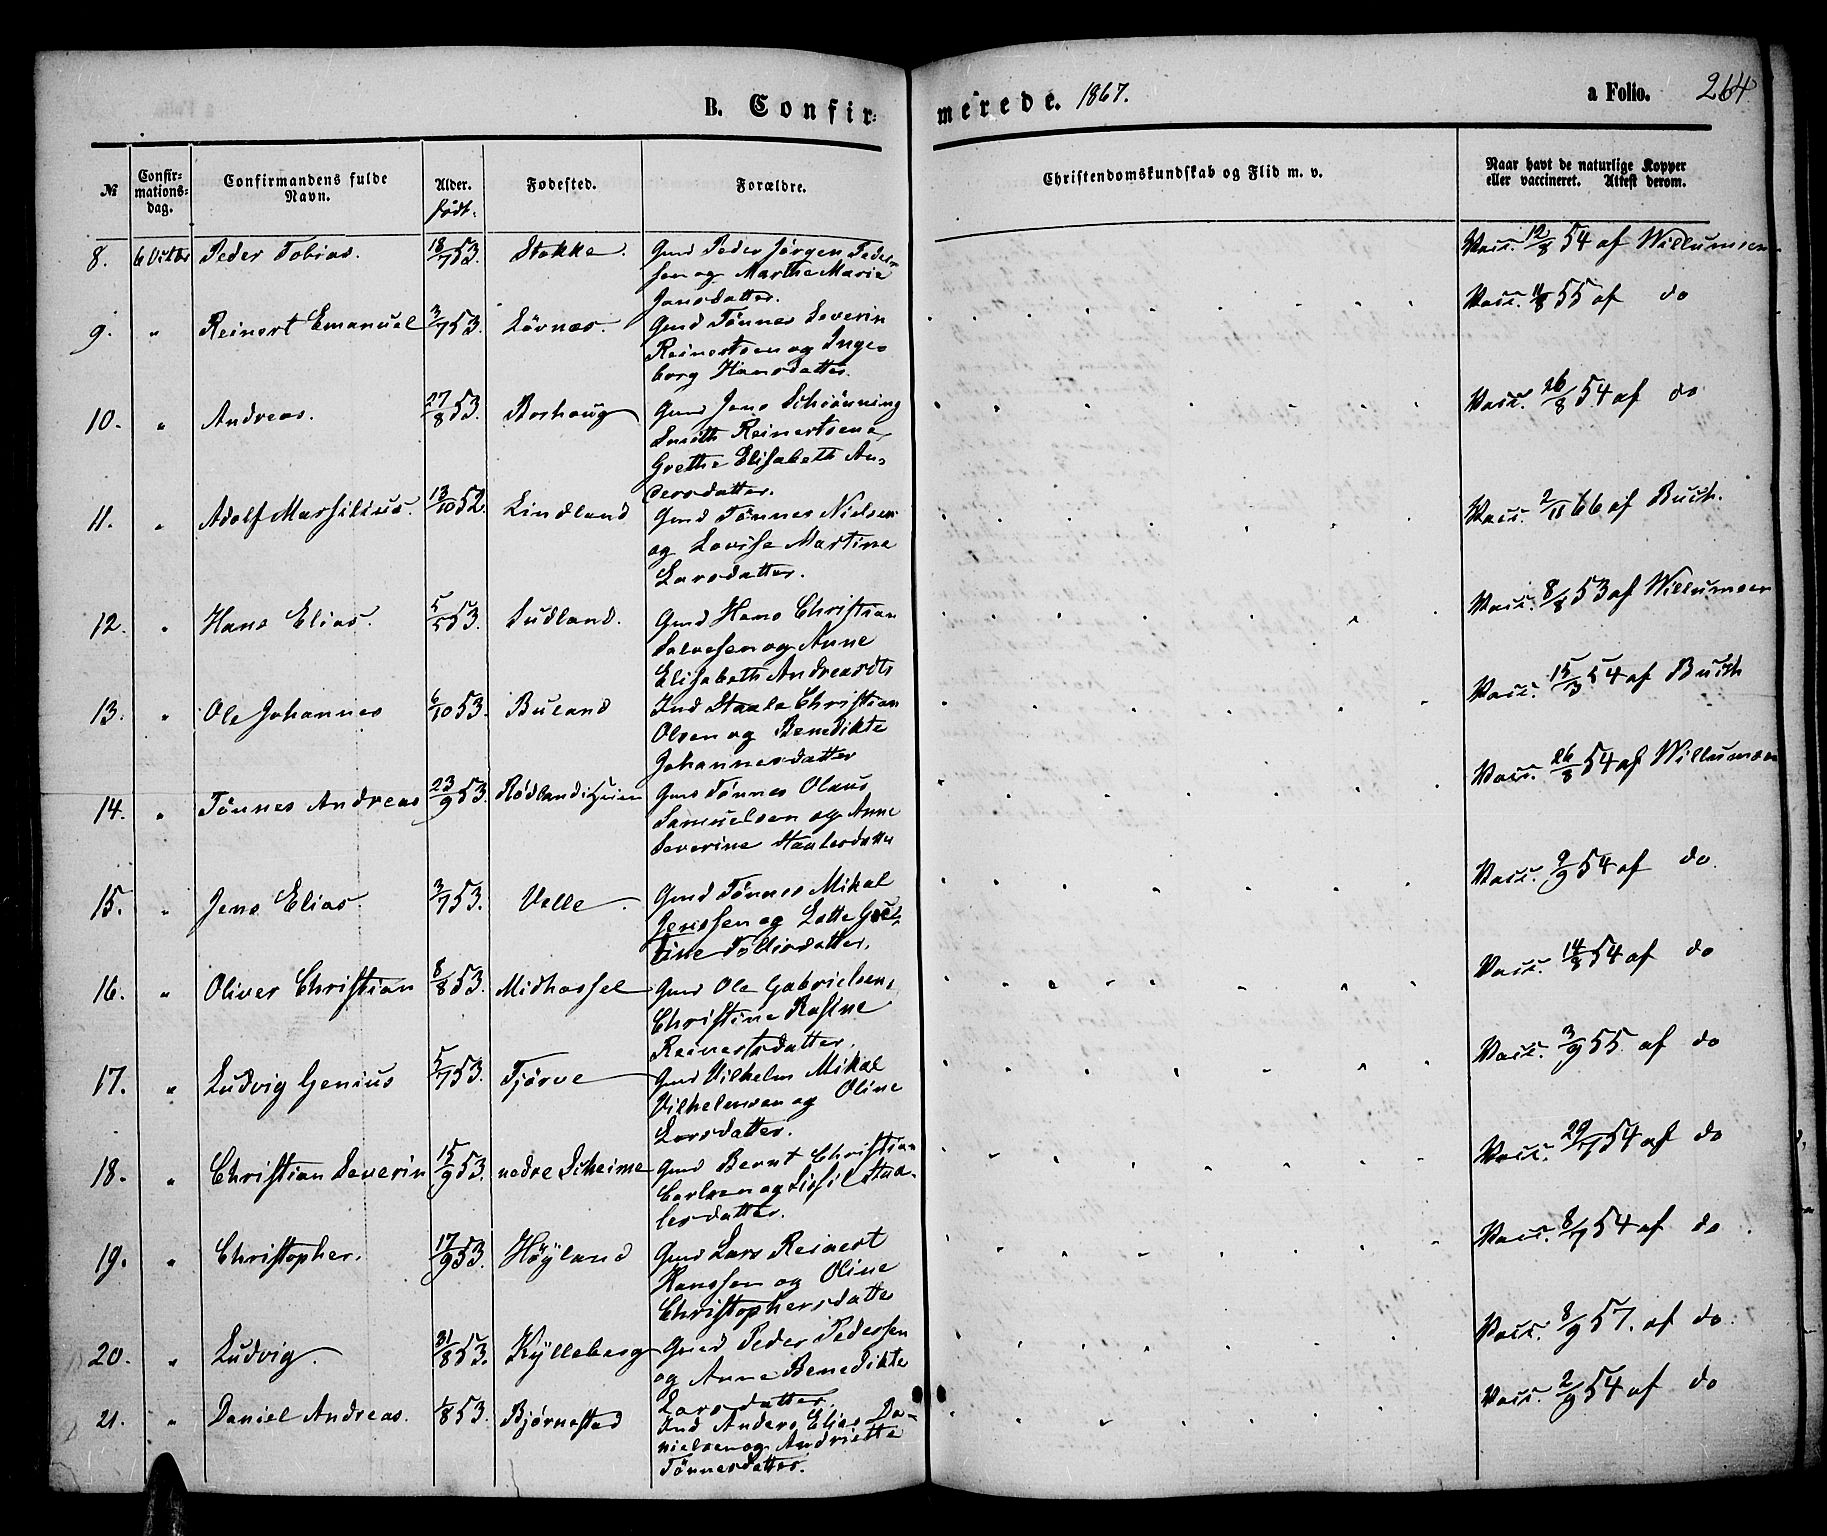 B. Confir- merede. 1867. a Folio. 264
№ Confir-mations-dag. Confirmandens fulde Navn. Alder. født. Fødested. Forældre. Christendomskundskab og Flid m. v. Naar havt de naturlige Kopper eller vaccineret. Attest derom.
8. 6 Octbr Peder Tobias. 18/7 53. Stokke. Gmd Peder Jørgen Peder- Vacc. 12/8 54 af Willumsen
sen og Marthe Marie
Jansdatter.
9. " Reinert Emanuel 3/7 53. Lövnæs. Gmd Tönnes Severin Vacc. 55 af do
Reinertsen og Inge-
borg Hansdatter.
10. " Andreas. 27/8 53. Borhaug Gmd Jens Schiönning Vacc. 26/8 54 af do
Smith Reinertsen
Grethe Elisabeth An-
dersdatter.
11. " Adolf Marsilius. 13/10 52. Lindland Gmd Tönnes Nielsen Vacc. 2/11 66 af Buch.
og Lovise Martine
Larsdatter.
12. " Hans Elias. 5/5 53. Sudland. Gmd Hans Christian Vacc. 8/8 53 af Willumsen
Salvesen og Anne
Elisabeth Andreasdtr
13. " Ole Johannes 6/10 53. Buland Ind Staale Christian Vacc. 15/3 54 af Buch
Olsen og Benedikte
Johannesdatter
14. " Tönnes Andreas 23/9 53. Rødlandsheien Gmd Tönnes Olaus Vacc. 26/8 54 af Willumsen
Samuelsen og Anne
Severine Staalesdatter
15. " Jens Elias. 3/7 53. Velle. Gmd Tönnes Mikal Vacc. 9/9 54 af do.
Jenssen og Lotte
Tolliсdatter.
16. " Oliver Christian 8/8 53. Midhassel Gmd Ole Gabrielsen, Vacc. 14/8 54 af do
Christine Rasine
Reinertsdatter.
17. " Ludvig Genius 5/7 53. Tjörve Gmd Vilhelm Mikal Vacc. 3/9 55 af do
Vilhelmsen og Oline
Larsdatter.
18. " Christian Severin 15/9 53. nedre Skeime Gmd Bernt Christian Vacc. 29/7 54 af do
Carlsen og Sissil Staa-
lesdatter.
19. " Christopher. 17/9 53. Höyland Gmd Lars Reinert Vacc. 8/7 54 af do.
Hanssen og Oline
Christophersdatter
20. " Ludvig. 31/8 53. Kÿlleberg Gmd Peder Pedersen Vacc. 8/9 57. af do.
og Anne Benedikte
Larsdatter.
21. " Daniel Andreas. 1/8 53. Bjørnestad Ind Anders Elias Da- Vacc. 2/9 54 af do
nielsen og Andriette
Tönnesdatter.